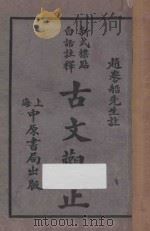 趙船先生註
新式標點
白話註釋
古文觀止
上海
中原書局出版